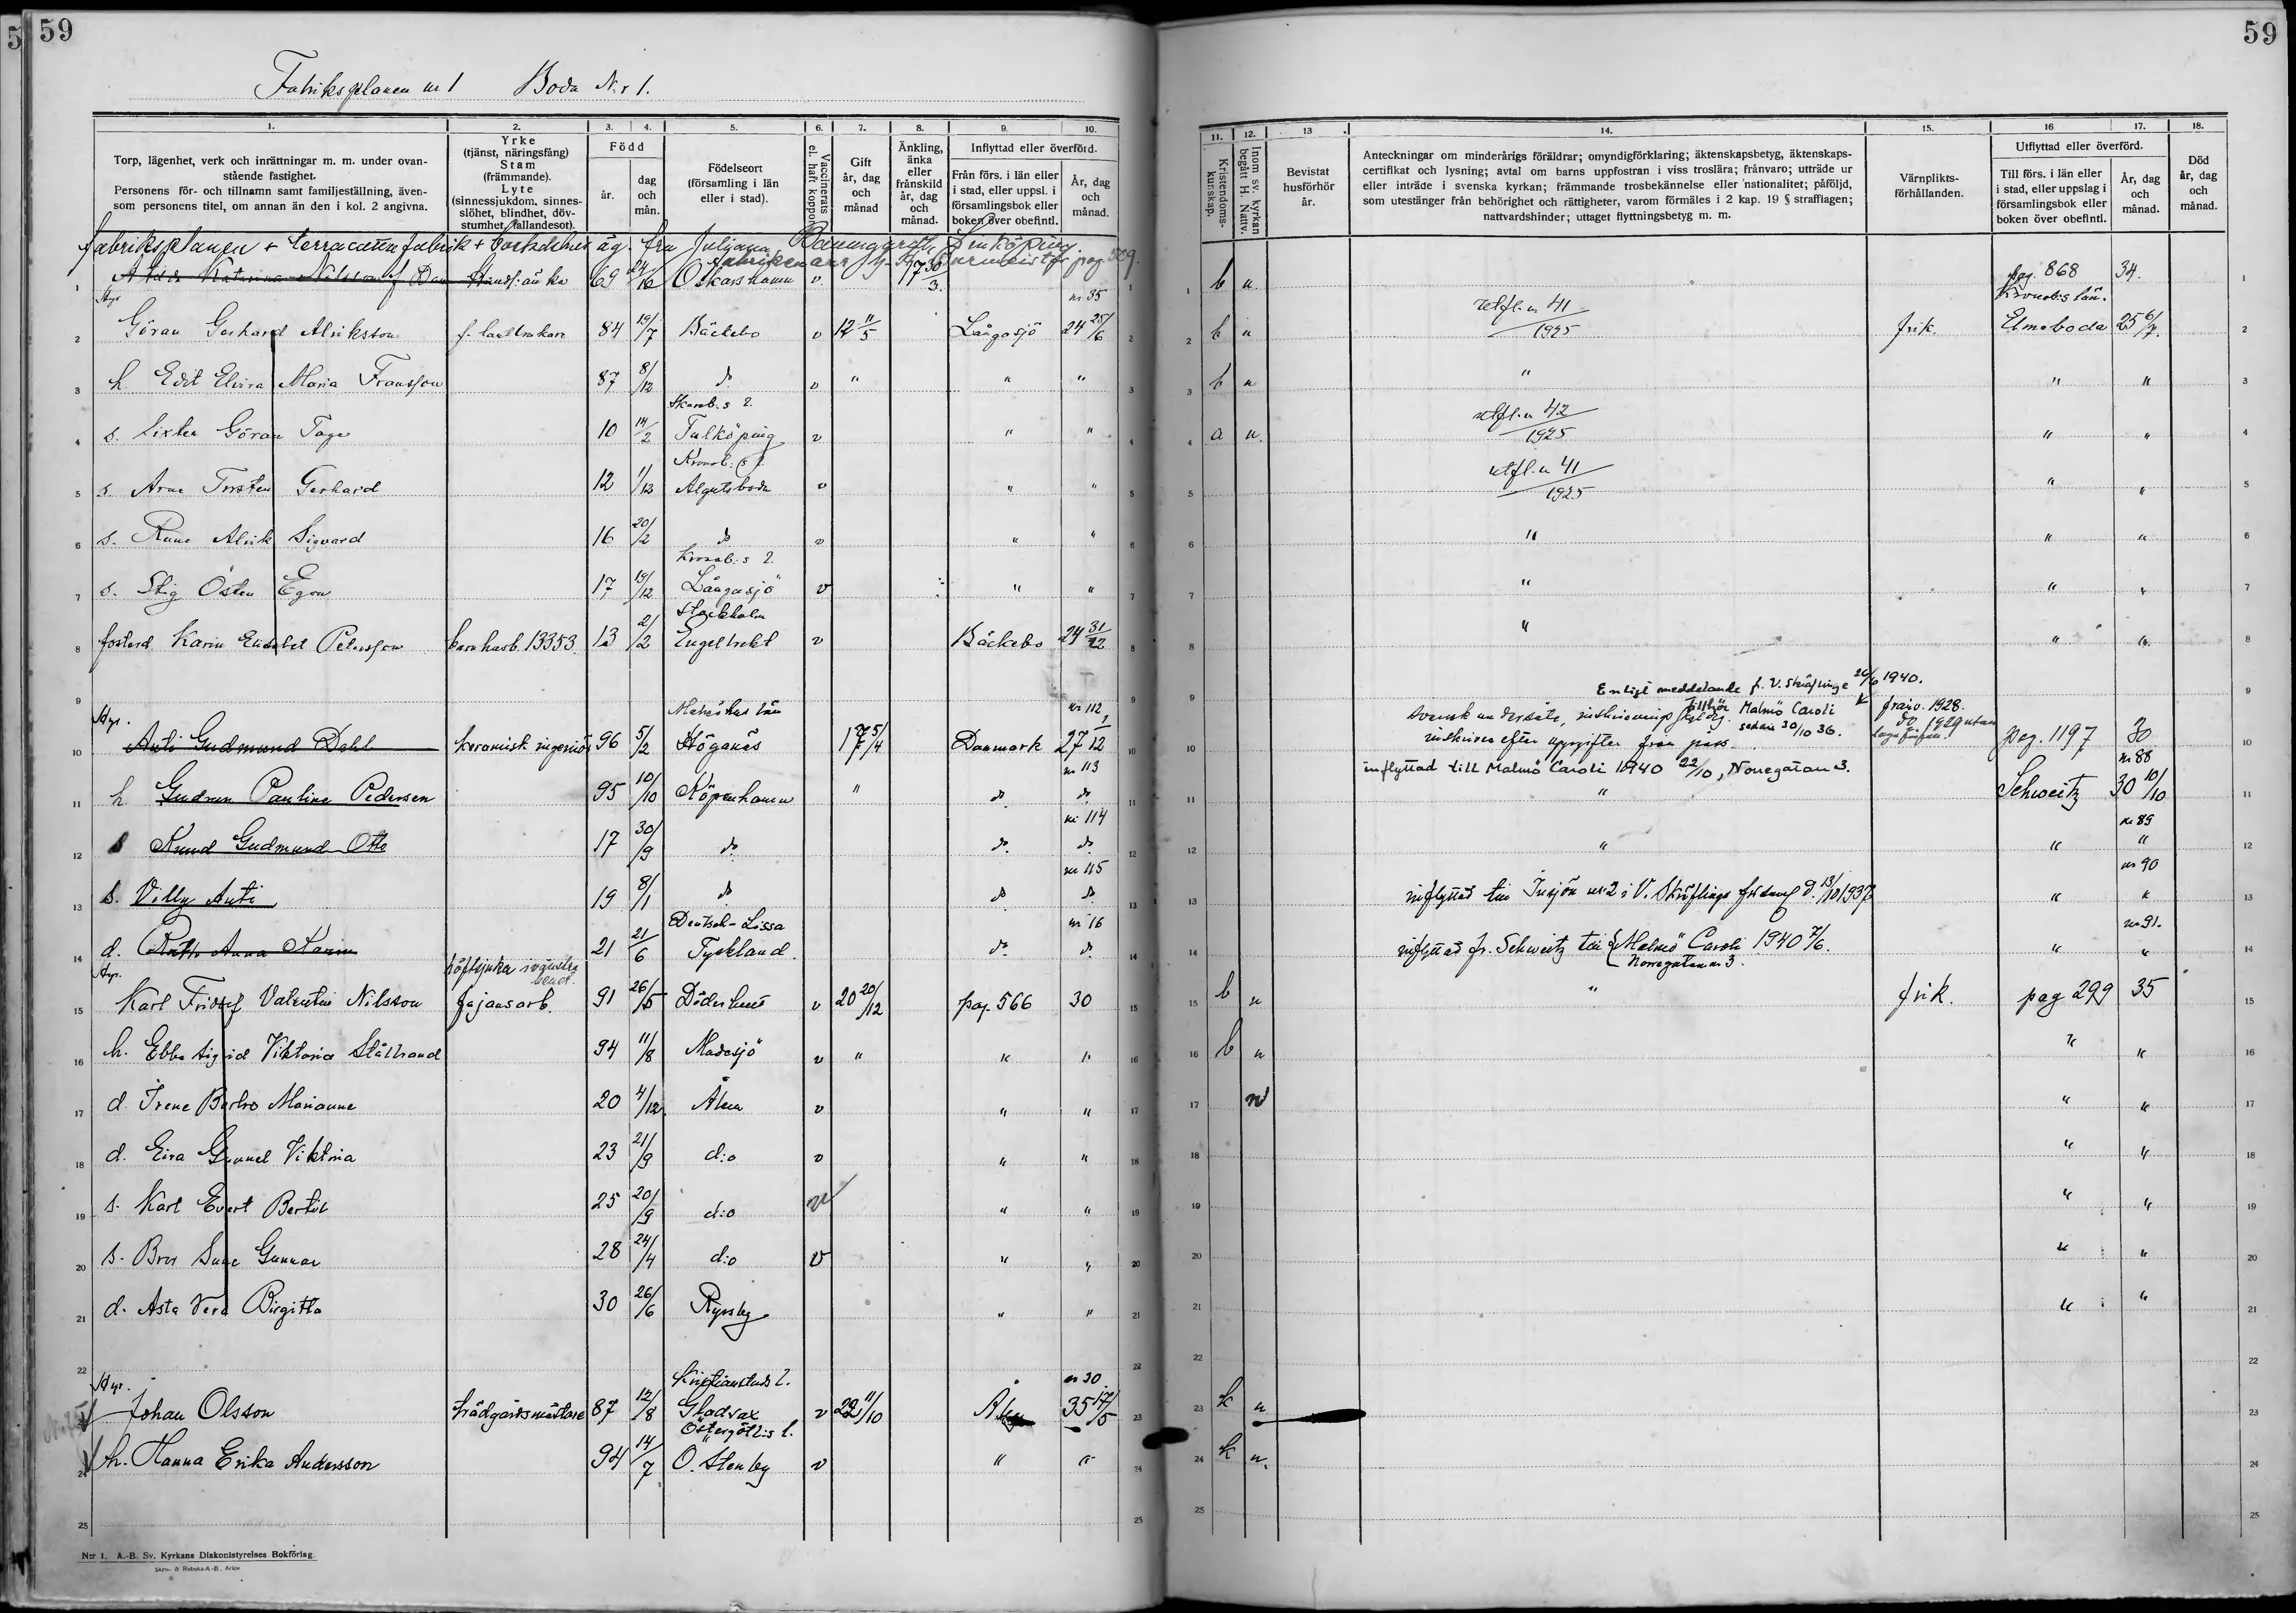 59
59
Fabriksplanen nr 1 Boda N:r 1.
1. 2. 3. 4. 5. 6. 7. 8. 9. 10.
Torp, lägenhet, verk och inrättningar m. m. under ovanstående fastighet.
Personens för- och tillnamn samt familjeställning, även-
som personens titel, om annan än den i kol. 2 angivna.
Yrke
(tjänst, näringsfång)
Stam
(främmande).
Lyte
(sinnessjukdom, sinnes-
slöhet, blindhet, döv-
stumhet, fallandesot).
Född
år.
dag
och
mån.
Födelseort
(församling i län
eller i stad).
Vaccinerats (v)
el. haft koppor.
Gift
år, dag
och
månad
Änkling,
änka
eller
frånskild
år, dag
och
månad.
Inflyttad eller överförd.
Från förs. i län eller
i stad, eller uppsl. i
församlingsbok eller
boken över obefintl.
År, dag
och
månad.
11. 12. 13. 14. 15. 16 17. 18.
Kristendoms-
kunskap.
Inom sv. kyrkan
begått H. Nattv.
Bevistat
husförhör
år.
Anteckningar om minderårigs föräldrar; omyndigförklaring; äktenskapsbetyg, äktenskaps-
certifikat och lysning; avtal om barns uppfostran i viss troslära; frånvaro; utträde ur
eller inträde i svenska kyrkan; främmande trosbekännelse eller nationalitet; påföljd,
som utestänger från behörighet och rättigheter, varom förmäles i 2 kap. 19 § strafflagen;
nattvardshinder; uttaget flyttningsbetyg m. m.
Värnplikts-
förhållanden.
Utflyttad eller överförd.
Till förs. i län eller
i stad, eller uppslag i
församlingsbok eller
boken över obefintl.
År, dag
och
månad.
Död
år, dag
och
månad.
fabriksplanen + terracottafabrik + bostadshus äg. fru Juliana Baumgardt, Linköping.
1 Katarina Nilsson änka 69 24/16 Oskarshamn v 17 30/3. b n pag. 868 34.
Hyr nr 35 Kronob:s län.
2 Göran Gerhard Alriksson f. lantbrukare 84 19/7 Bäckebo v 12 11/5 Långasjö 24 25/6 b n utfl. n 41/1925 frik. Elmeboda 25 6/7.
3 h. Edit Elvira Maria Fransson 87 8/12 do v " " " b n " " "
Skarab:s l.
4 s. Sixten Göran Tage 10 14/2 Falköping v " " a n. utfl. n 42/1925 " "
Kronob:s l.
5 s. Arne Torsten Gerhard 12 1/12 Algutsboda v " " utfl. n 41/1925 " "
6 s. Rune Alrik Sigvard 16 20/2 do v " " " " "
Kronob:s l.
7 s. Stig Östen Egon 17 19/12 Långasjö v " " " " "
Stockholm
8 fosterd. Karin Elisabet Petersson barnhusb. 13353. 13 2/2 Engelbrekt v Bäckebo 24 31/12 " " "
9 Enligt meddelande f. V. Skräflinge 26/6 1940.
Hyr. Malmöhus län nr 112 tillhör Malmö Caroli
svensk undersåte, inskrivnings skyldig. sedan 30/10 36. frånv. 1928.
do 1929 utan
10 Anti Gudmund Dahl keramisk ingeniör 96 5/2 Höganäs 17 5/4 Danmark 27 1/12 inskriven efter uppgifter från pass. pag. 1197 30
nr 113 inflyttad till Malmö Caroli 1940 22/10, Norregatan 3. nr 88
11 h. Gudrun Pauline Pedersen 95 10/10 Köpenhamn " do do " Schweitz 30 10/10
nr 114 nr 89
12 s Knud Gudmund Otto 17 30/9 do do do " " "
nr 115 nr 90
13 s. Villy Anti 19 8/1 do do do inflyttad till Insjön nr 2 i V. Skräflinge förs. d. 13/10 1937 " "
Deutsch-Lissa nr 16 nr 91.
14 d. Ruth Anna Karin 21 21/6 Tyskland. do do inflyttad fr. Schweitz till Malmö Caroli 1940 7/6. " "
Norregatan nr 3.
Hyr. höftsjuka
15 Karl Fridolf Valentin Nilsson fajansarb. 91 26/5 Döderhult v 20 20/12 pag. 566 30 b n " frik. pag 299 35
16 h. Ebba Sigrid Viktoria Stålbrand 94 11/8 Madesjö v " " " b n " "
17 d. Irene Barbro Marianne 20 4/12 Ålem v " " n " "
18 d. Eira Gunnel Viktoria 23 21/9 d:o v " " " "
19 s. Karl Evert Bertil 25 20/9 d:o v " " " "
20 s. Bror Sune Gunnar 28 24/4 d:o v " " " "
21 d. Asta Vera Birgitta 30 26/6 Ryssby " " " "
22
Hyr. Kristianstads l. nr 30
23 Johan Olsson trädgårdsmästare 87 12/8 Gladsax v 22 11/10 Ålem 35 17/5 k n
Östergötl:s l.
24 h. Hanna Erika Andersson 94 14/7 Ö. Stenby v " " k n.
25
N:r 1. A.-B. Sv. Kyrkans Diakonistyrelses Bokförlag.